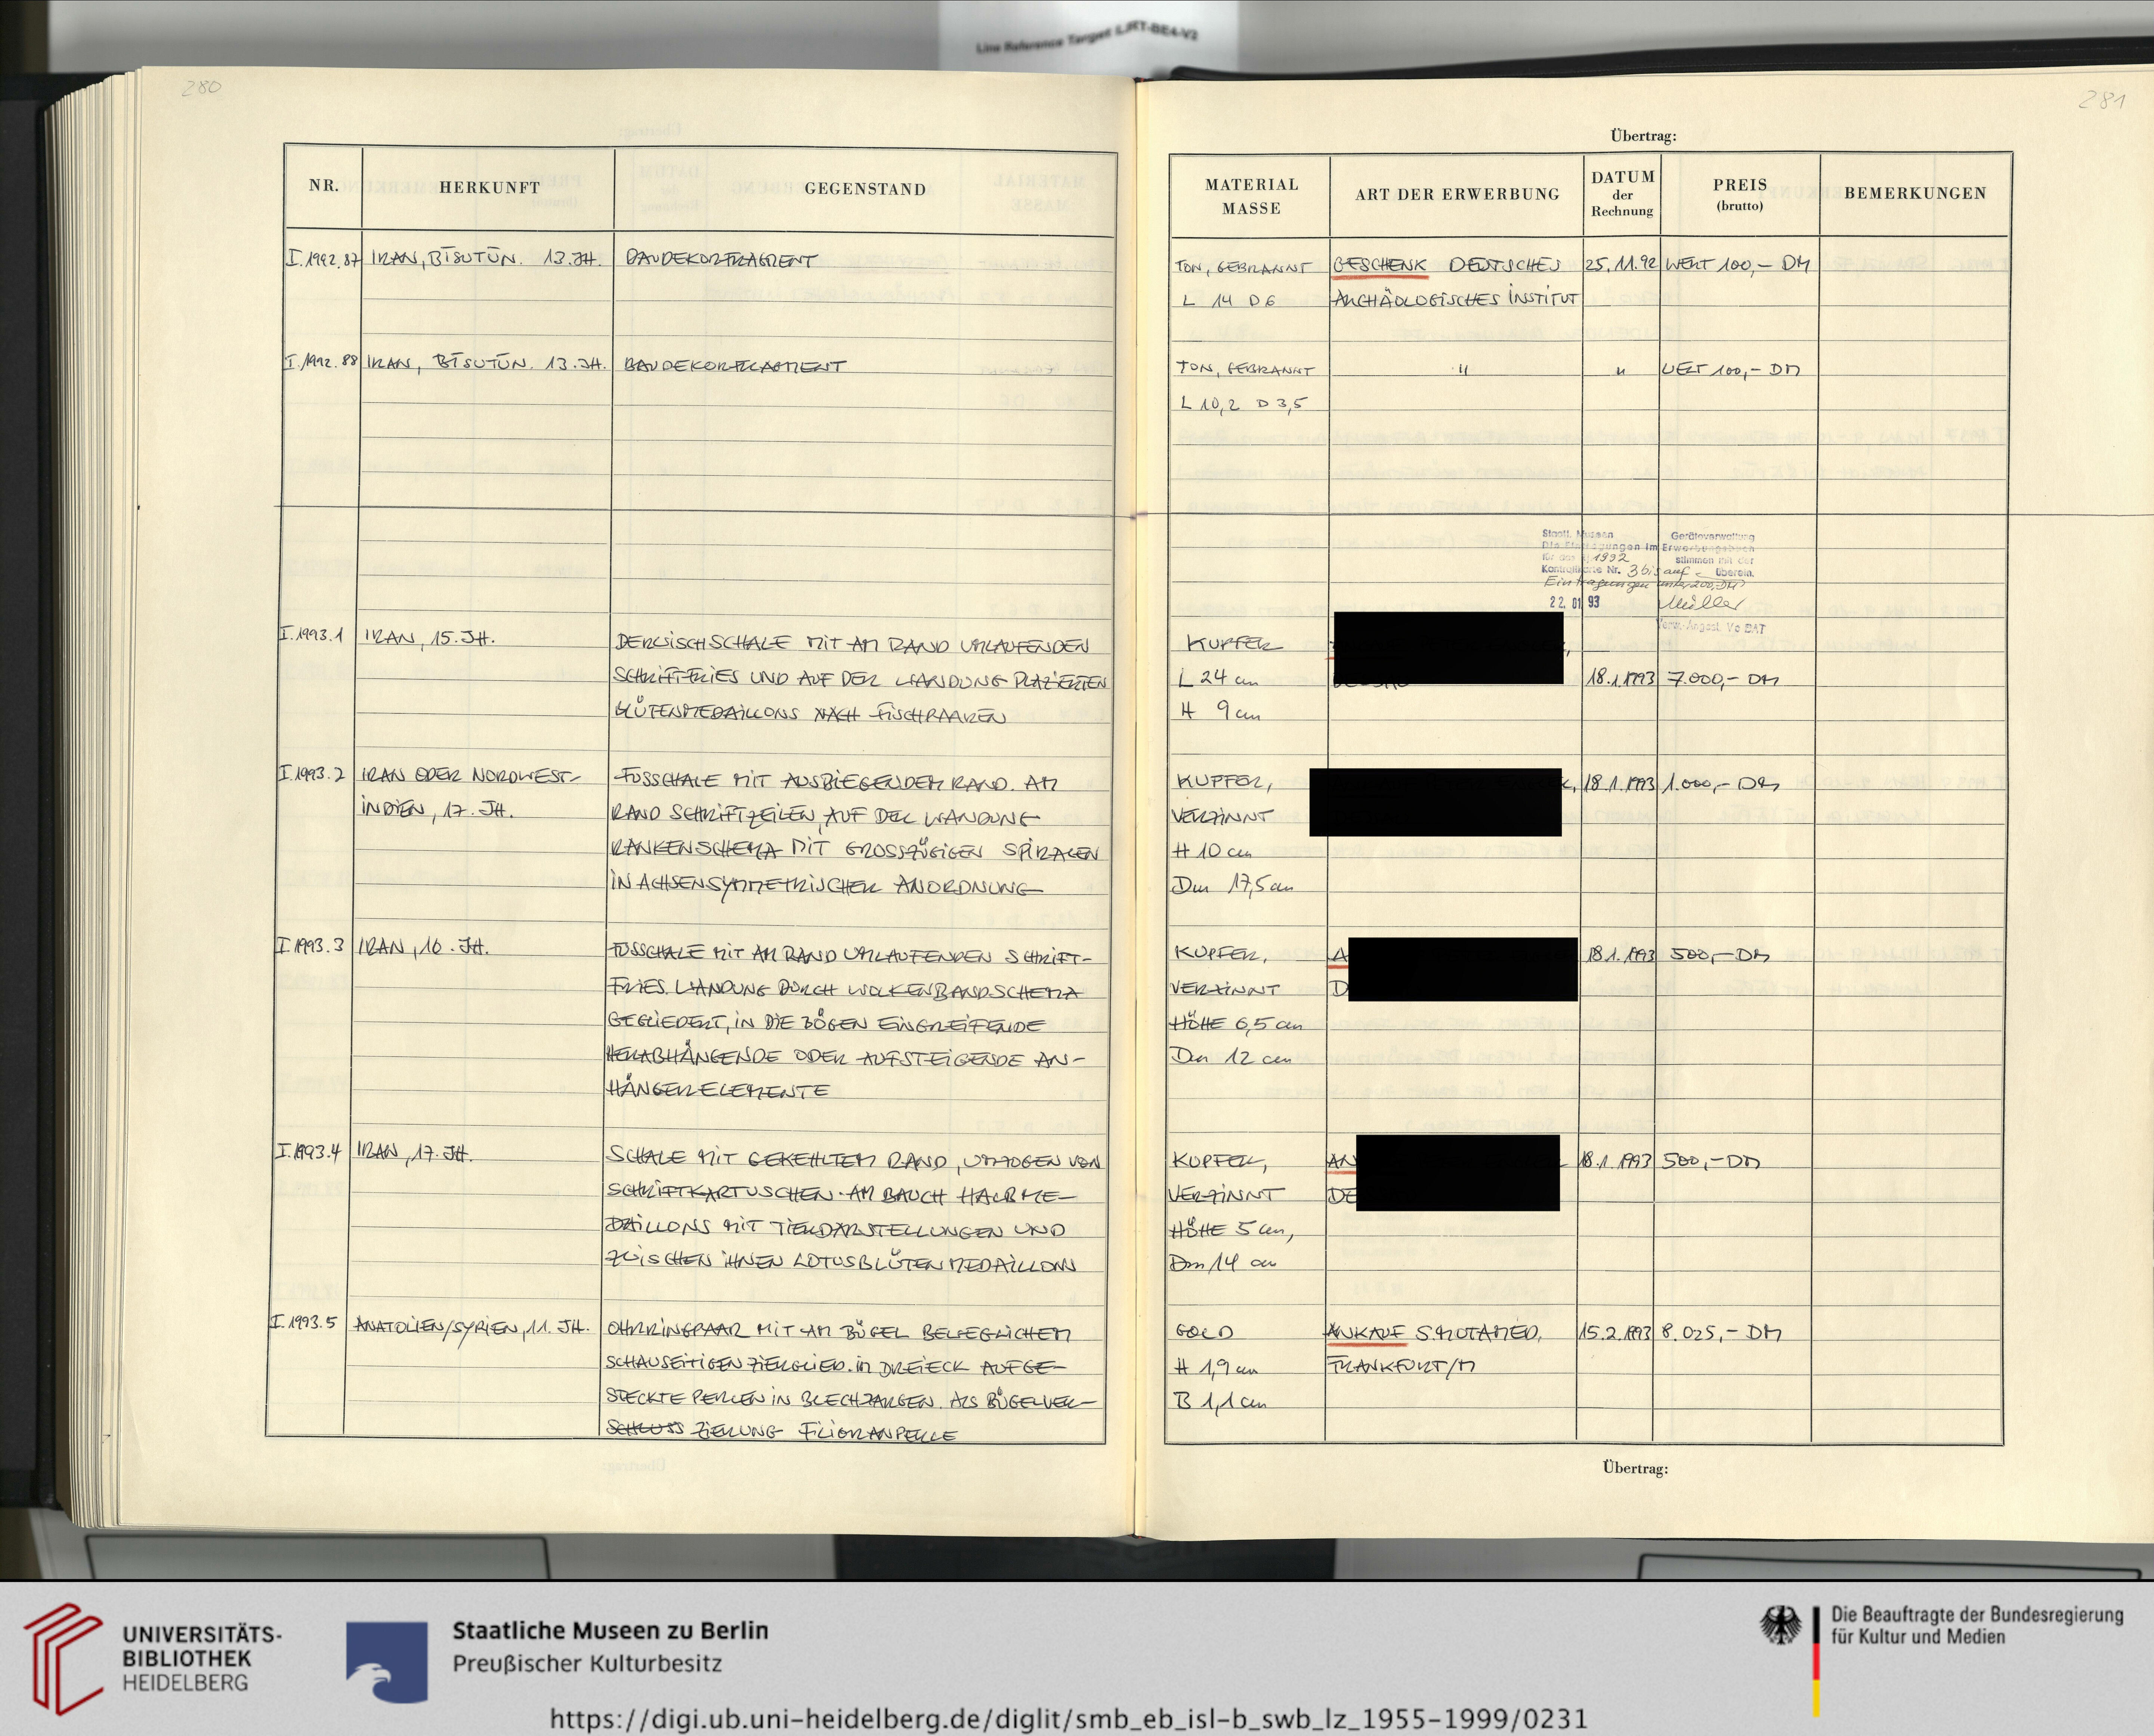 Line Reference Target LJRT-BE4-V2
280
281
Übertrag:
NR.
HERKUNFT
GEGENSTAND
MATERIAL
MASSE
ART DER ERWERBUNG
DATUM
der
Rechnung
PREIS
(brutto)
BEMERKUNGEN
I.1992.87 IRAN, BĪSUTŪN. 13.JH. BAUDEKORFRAGMENT
TON, GEBRANNT GESCHENK DEUTSCHES 25.11.92 WERT 100,- DM
L 14 D 6 ARCHÄOLOGISCHES INSTITUT
I.1992.88 IRAN, BĪSUTŪN. 13.JH. BAUDEKORFRAGMENT
TON, GEBRANNT " " WERT 100,- DM
L 10,2 D 3,5
Staatl. Museen Geräteverwaltung
Die Eintragungen im Erwerbungsbuch
für das 1992 stimmen mit der
Kontrollkarte Nr. 3 bis auf überein.
Eintragungen unter 200,DM
22. 01. 93 Müller
Verw.-Angest. Vc BAT
I.1993.1 IRAN, 15.JH. DERWISCHSCHALE MIT AM RAND UMLAUFENDEN
SCHRIFTFRIES UND AUF DER WANDUNG PLAZIERTEN
BLÜTENMEDAILLONS NACH FISCHPAAREN
KUPFER
L 24 cm 18.1.1993 7.000,- DM
H 9 cm
I.1993.2 IRAN ODER NORDWEST- FUSSCHALE MIT AUSBIEGENDEM RAND. AM
INDIEN, 17. JH. RAND SCHRIFTZEILEN, AUF DER WANDUNG
RANKENSCHEMA MIT GROSSZÜGIGEN SPIRALEN
IN ACHSENSYMMETRISCHER ANORDNUNG
KUPFER, 18.1.1993 1.000,- DM
VERZINNT
H 10 cm
Dm 17,5 cm
I.1993.3 IRAN, 16. JH. FUSSCHALE MIT AM RAND UMLAUFENDEN SCHRIFT-
FRIES. WANDUNG DURCH WOLKENBANDSCHEMA
GEGLIEDERT, IN DIE BÖGEN EINGREIFENDE
HERABHÄNGENDE ODER AUFSTEIGENDE AN-
HÄNGERELEMENTE
KUPFER, A 18.1.1993 500,- DM
VERZINNT D
HÖHE 6,5 cm
Dm 12 cm
I.1993.4 IRAN, 17. JH. SCHALE MIT GEKEHLTEM RAND, UMZOGEN VON
SCHRIFTKARTUSCHEN. AM BAUCH HALBME-
DAILLONS MIT TIERDARSTELLUNGEN UND
ZWISCHEN IHNEN LOTUSBLÜTENMEDAILLONS
KUPFER, AN 18.1.1993 500,- DM
VERZINNT DE
HÖHE 5 cm,
Dm 14 cm
I.1993.5 ANATOLIEN/SYRIEN, 11. JH. OHRRINGPAAR MIT AM BÜGEL BEWEGLICHEM
SCHAUSEITIGEN ZIERGLIED. IM DREIECK AUFGE-
STECKTE PERLEN IN BLECHZARGEN. ALS BÜGELVER-
SCHLUSS ZIERUNG FILIGRANPERLE
GOLD ANKAUF S.MOTAMED, 15.2.1993 8.025,- DM
H 1,9 cm FRANKFURT/M
B 1,1 cm
Übertrag:
UNIVERSITÄTS-
BIBLIOTHEK
HEIDELBERG
Staatliche Museen zu Berlin
Preußischer Kulturbesitz
Die Beauftragte der Bundesregierung
für Kultur und Medien
https://digi.ub.uni-heidelberg.de/diglit/smb_eb_isl-b_swb_lz_1955-1999/0231